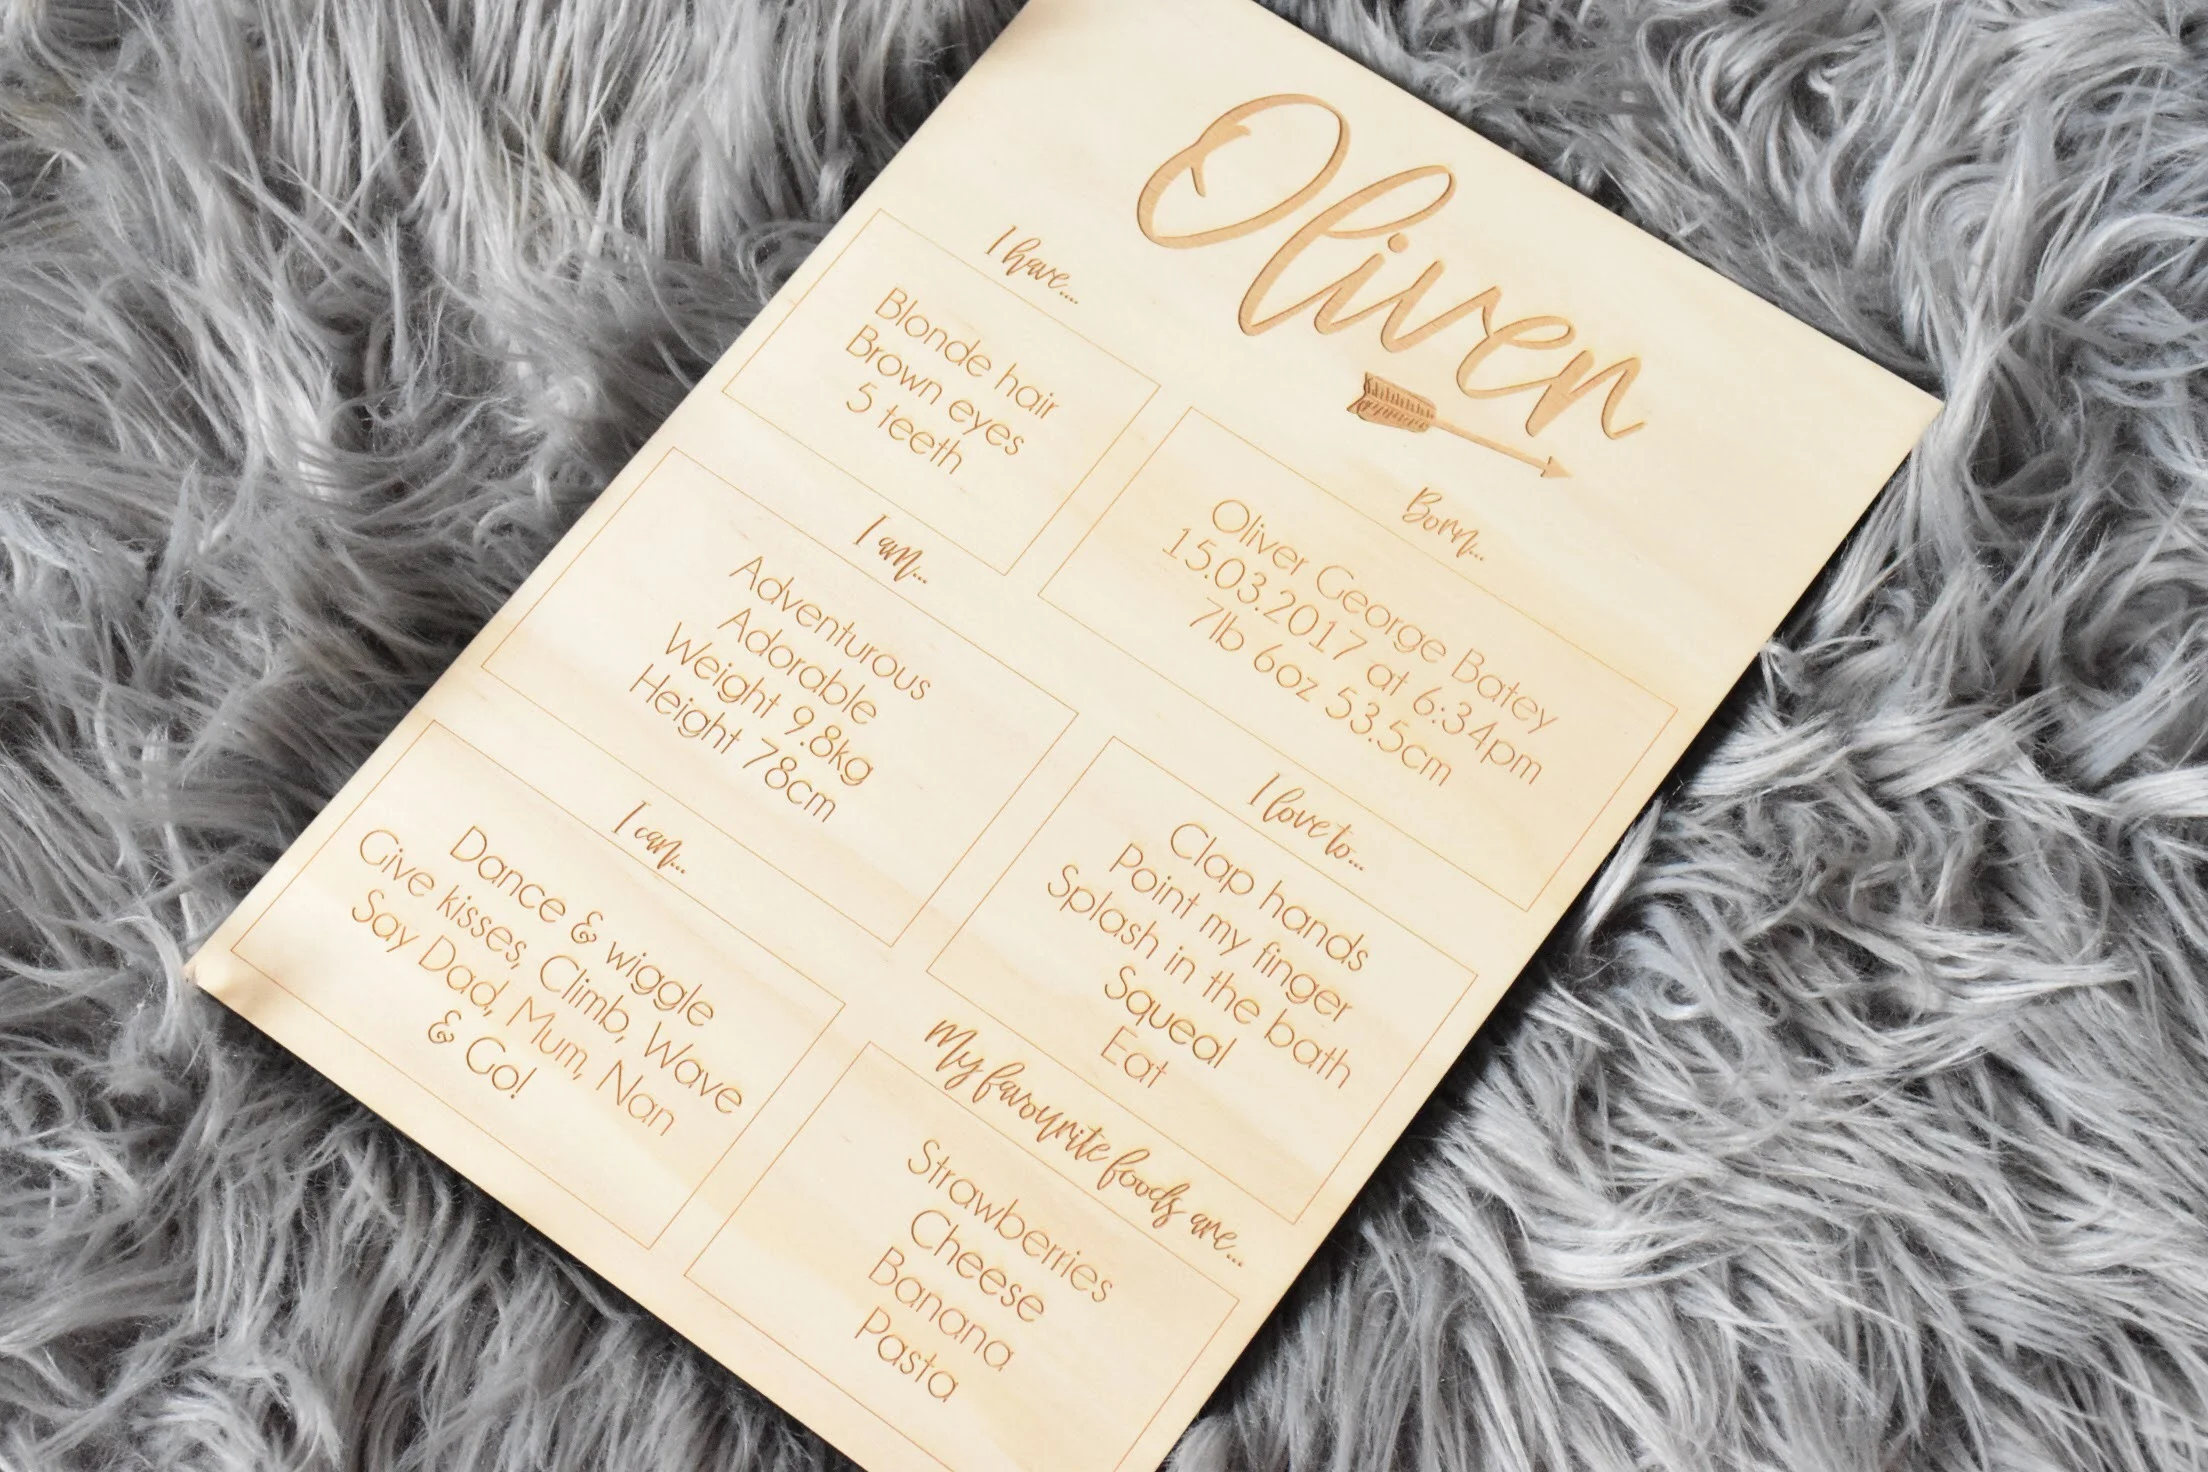 Oliver
I have....
Blonde hair
Brown eyes
5 teeth
Born...
Oliver George Batey
15.03.2017 at 6:34pm
7lb 6oz 53.5cm
I am...
Adventurous
Adorable
Weight 9.8kg
Height 78cm
I love to...
Clap hands
Point my finger
Splash in the bath
Squeal
Eat
I can...
Dance & wiggle
Give kisses, Climb, Wave
Say Dad, Mum, Nan
& Go!
My favourite foods are...
Strawberries
Cheese
Banana
Pasta